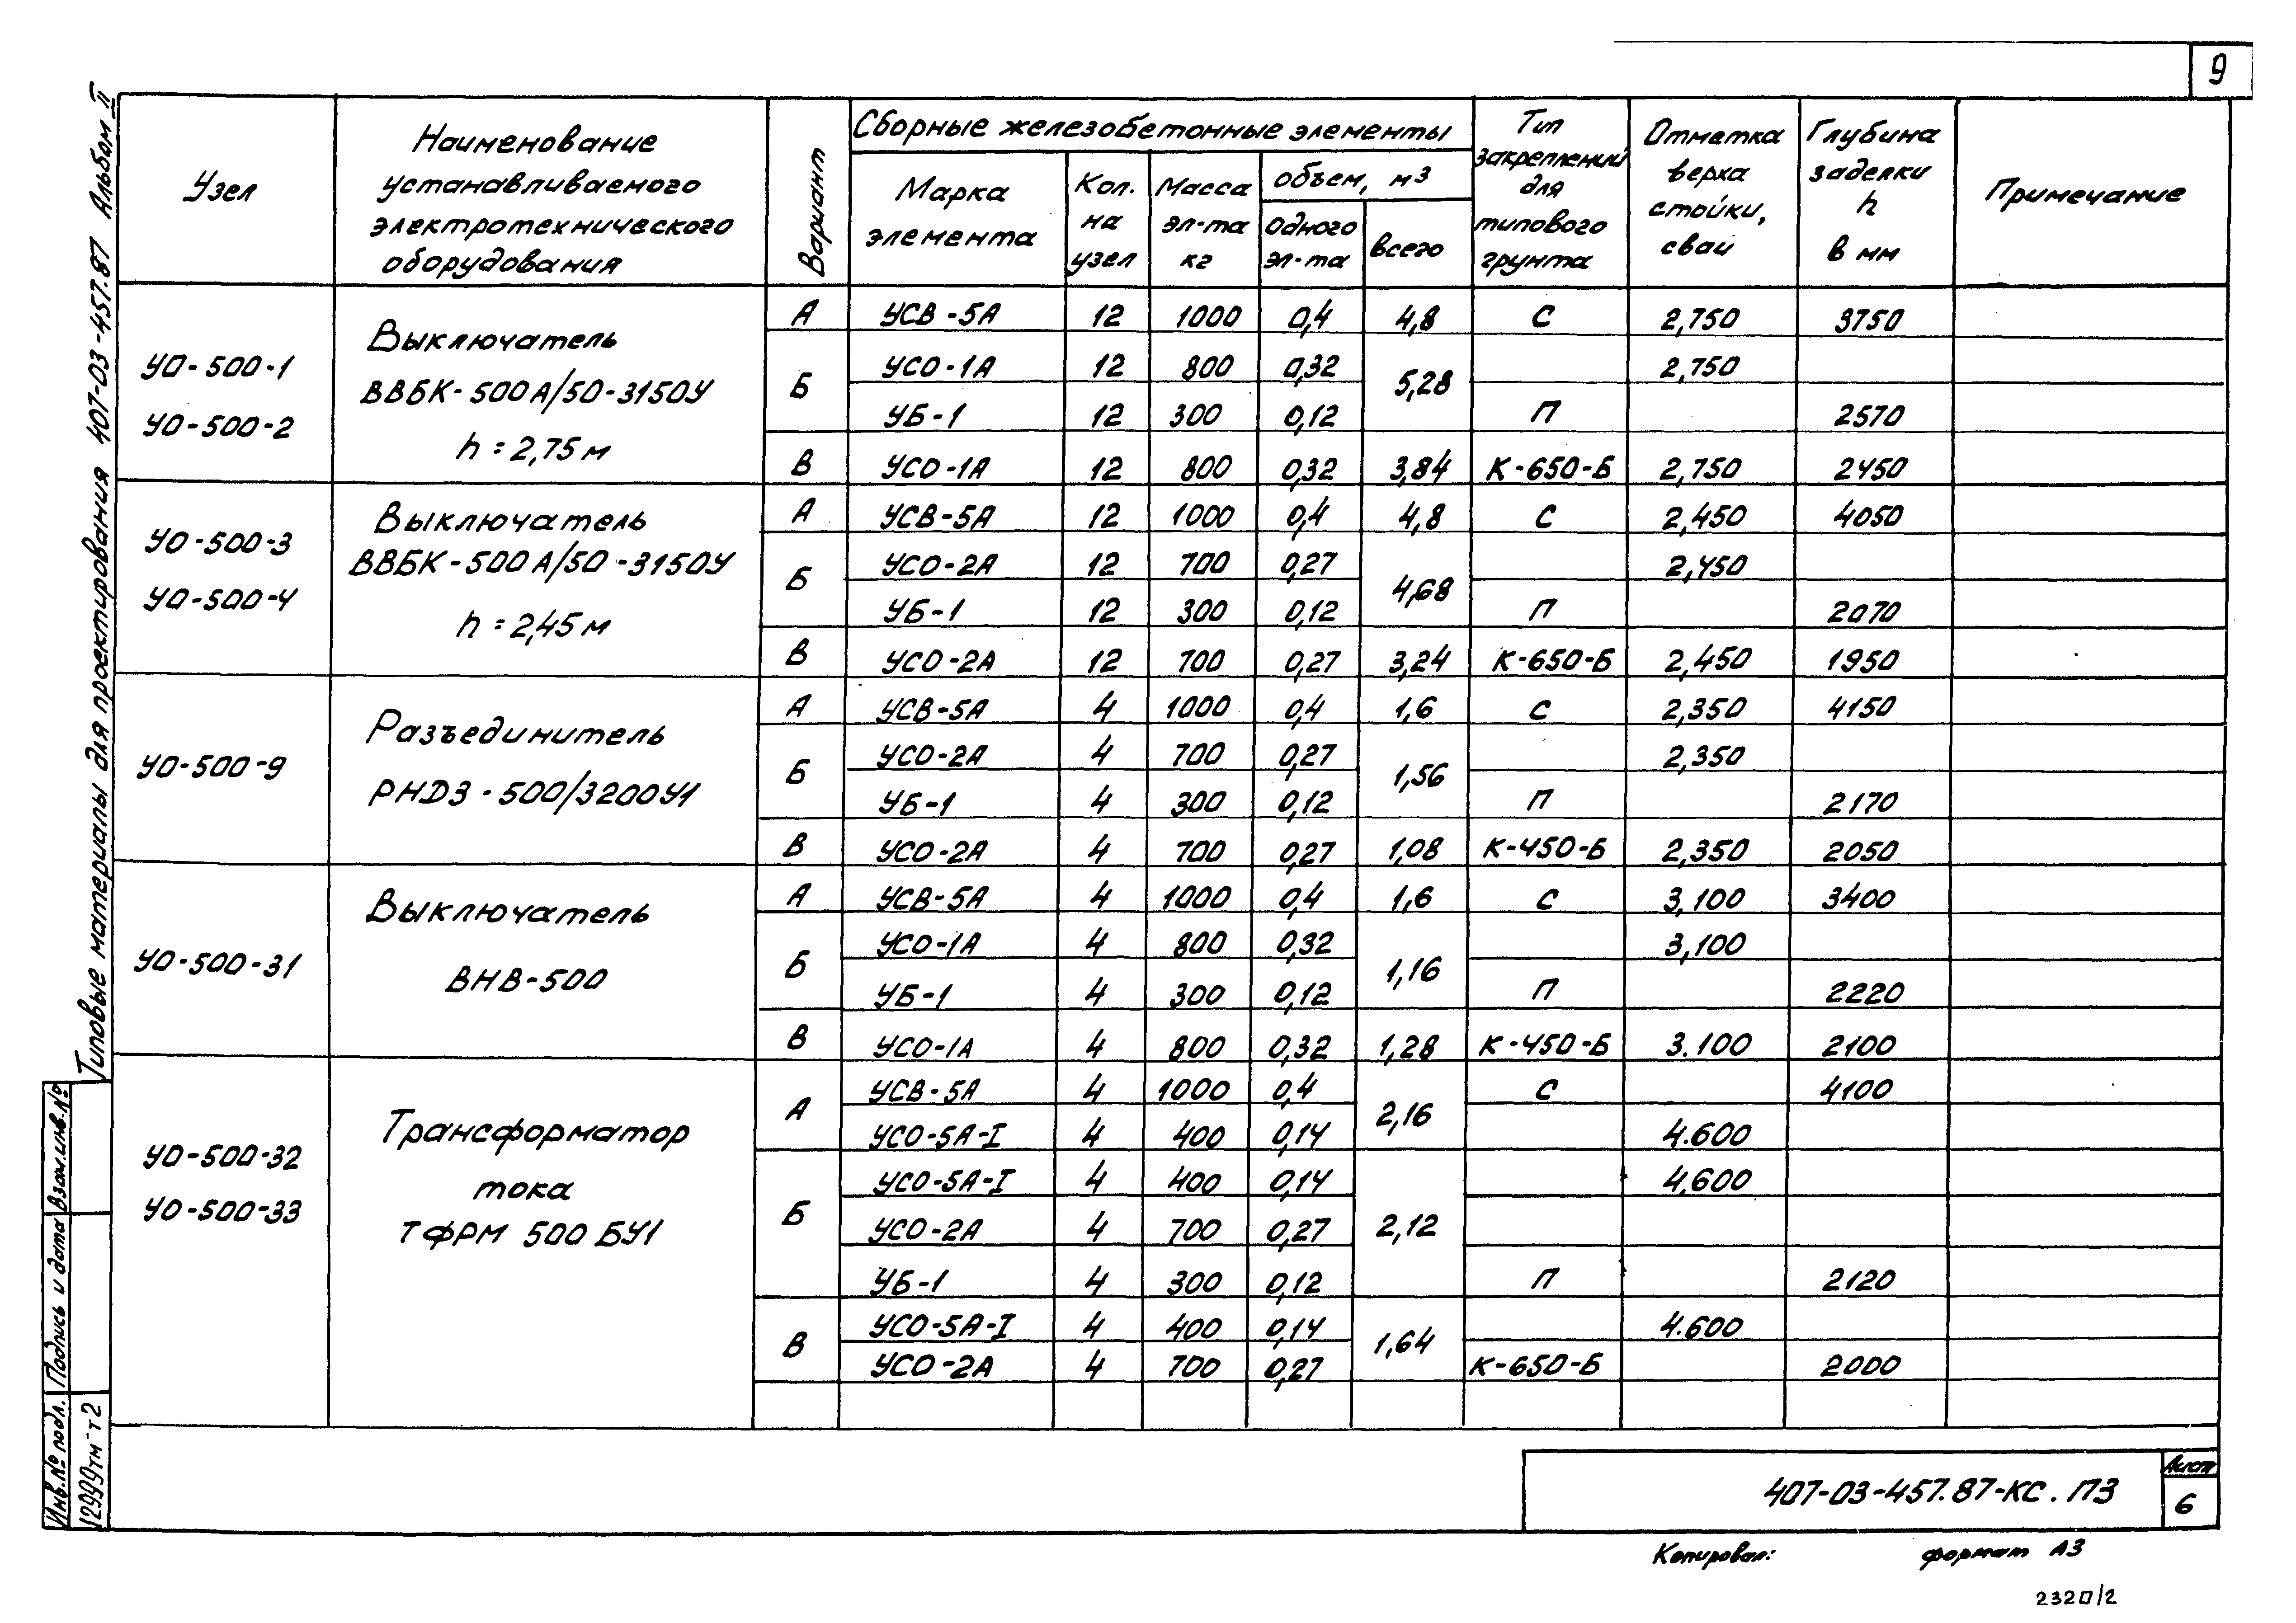 9
Типовые материалы для проектирования 407-03-457.87 Альбом II
Узел
Наименование
устанавливаемого
электротехнического
оборудования
Вариант
Сборные железобетонные элементы
Марка
элемента
Кол.
на
узел
Масса
эл-та
кг
объем, м3
одного
эл-та
всего
Тип
закреплений
для
типового
грунта
Отметка
верха
стойки,
сваи
Глубина
заделки
h
в мм
Примечание
УО-500-1
УО-500-2
Выключатель
ВВБК-500А/50-3150У
h = 2,75 м
А УСВ-5А 12 1000 0,4 4,8 С 2,750 3750
Б УСО-1А 12 800 0,32 5,28 2,750
УБ-1 12 300 0,12 П 2570
В УСО-1А 12 800 0,32 3,84 К-650-Б 2,750 2450
УО-500-3
УО-500-4
Выключатель
ВВБК-500А/50-3150У
h = 2,45 м
А УСВ-5А 12 1000 0,4 4,8 С 2,450 4050
Б УСО-2А 12 700 0,27 4,68 2,450
УБ-1 12 300 0,12 П 2070
В УСО-2А 12 700 0,27 3,24 К-650-Б 2,450 1950
УО-500-9
Разъединитель
РНДЗ-500/3200У1
А УСВ-5А 4 1000 0,4 1,6 С 2,350 4150
Б УСО-2А 4 700 0,27 1,56 2,350
УБ-1 4 300 0,12 П 2170
В УСО-2А 4 700 0,27 1,08 К-450-Б 2,350 2050
УО-500-31
Выключатель
ВНВ-500
А УСВ-5А 4 1000 0,4 1,6 С 3,100 3400
Б УСО-1А 4 800 0,32 1,16 3,100
УБ-1 4 300 0,12 П 2220
В УСО-1А 4 800 0,32 1,28 К-450-Б 3.100 2100
УО-500-32
УО-500-33
Трансформатор
тока
ТФРМ 500 БУ1
А УСВ-5А 4 1000 0,4 2,16 С 4100
УСО-5А-I 4 400 0,14 4.600
Б УСО-5А-I 4 400 0,14 2,12 4,600
УСО-2А 4 700 0,27
УБ-1 4 300 0,12 П 2120
В УСО-5А-I 4 400 0,14 1,64 4.600
УСО-2А 4 700 0,27 К-650-Б 2000
Взам.инв.№
Подпись и дата
Инв.№ подл.
12999тм-т2
407-03-457.87-КС.ПЗ
Лист
6
Копировал:
формат А3
2320/2